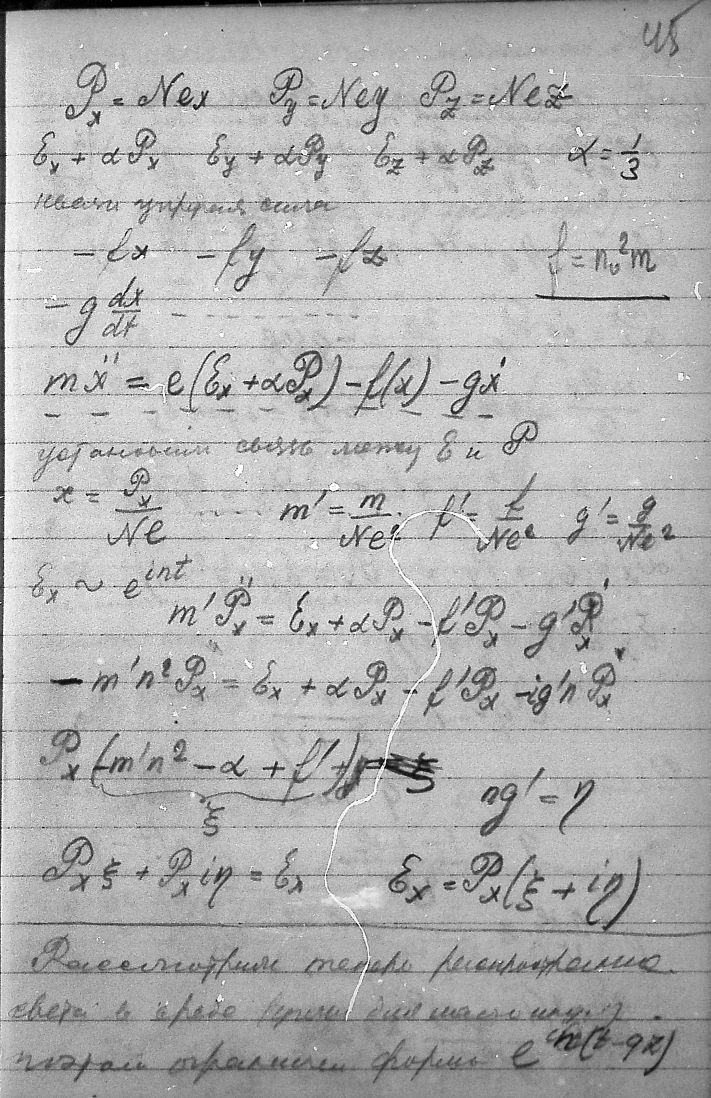 45
P_x = Nex P_y = Ney P_z = Nez
ℰ_x + αP_x ℰ_y + αP_y ℰ_z + αP_z α = 1/3
сила
- fx - fy - fz f = n₀²m
- g dx/dt - - - - - -
mẍ = e(ℰ_x + αP_x) - f(x) - gẋ
установим связь между ℰ и P
x = P_x/Ne ..... m' = m/Ne² f' = f/Ne² g' = g/Ne²
ℰ_x ~ e^{int}
m'P̈_x = ℰ_x + αP_x - f'P_x - g'Ṗ_x
- m'n²P_x = ℰ_x + αP_x - f'P_x - ig'nP_x
P_x(-m'n² - α + f')
ξ ng' = η
P_xξ + P_xiη = ℰ_x ℰ_x = P_x(ξ + iη)
Рассмотрим теперь распространение
света в среде
форме e^{in(t-qz)}